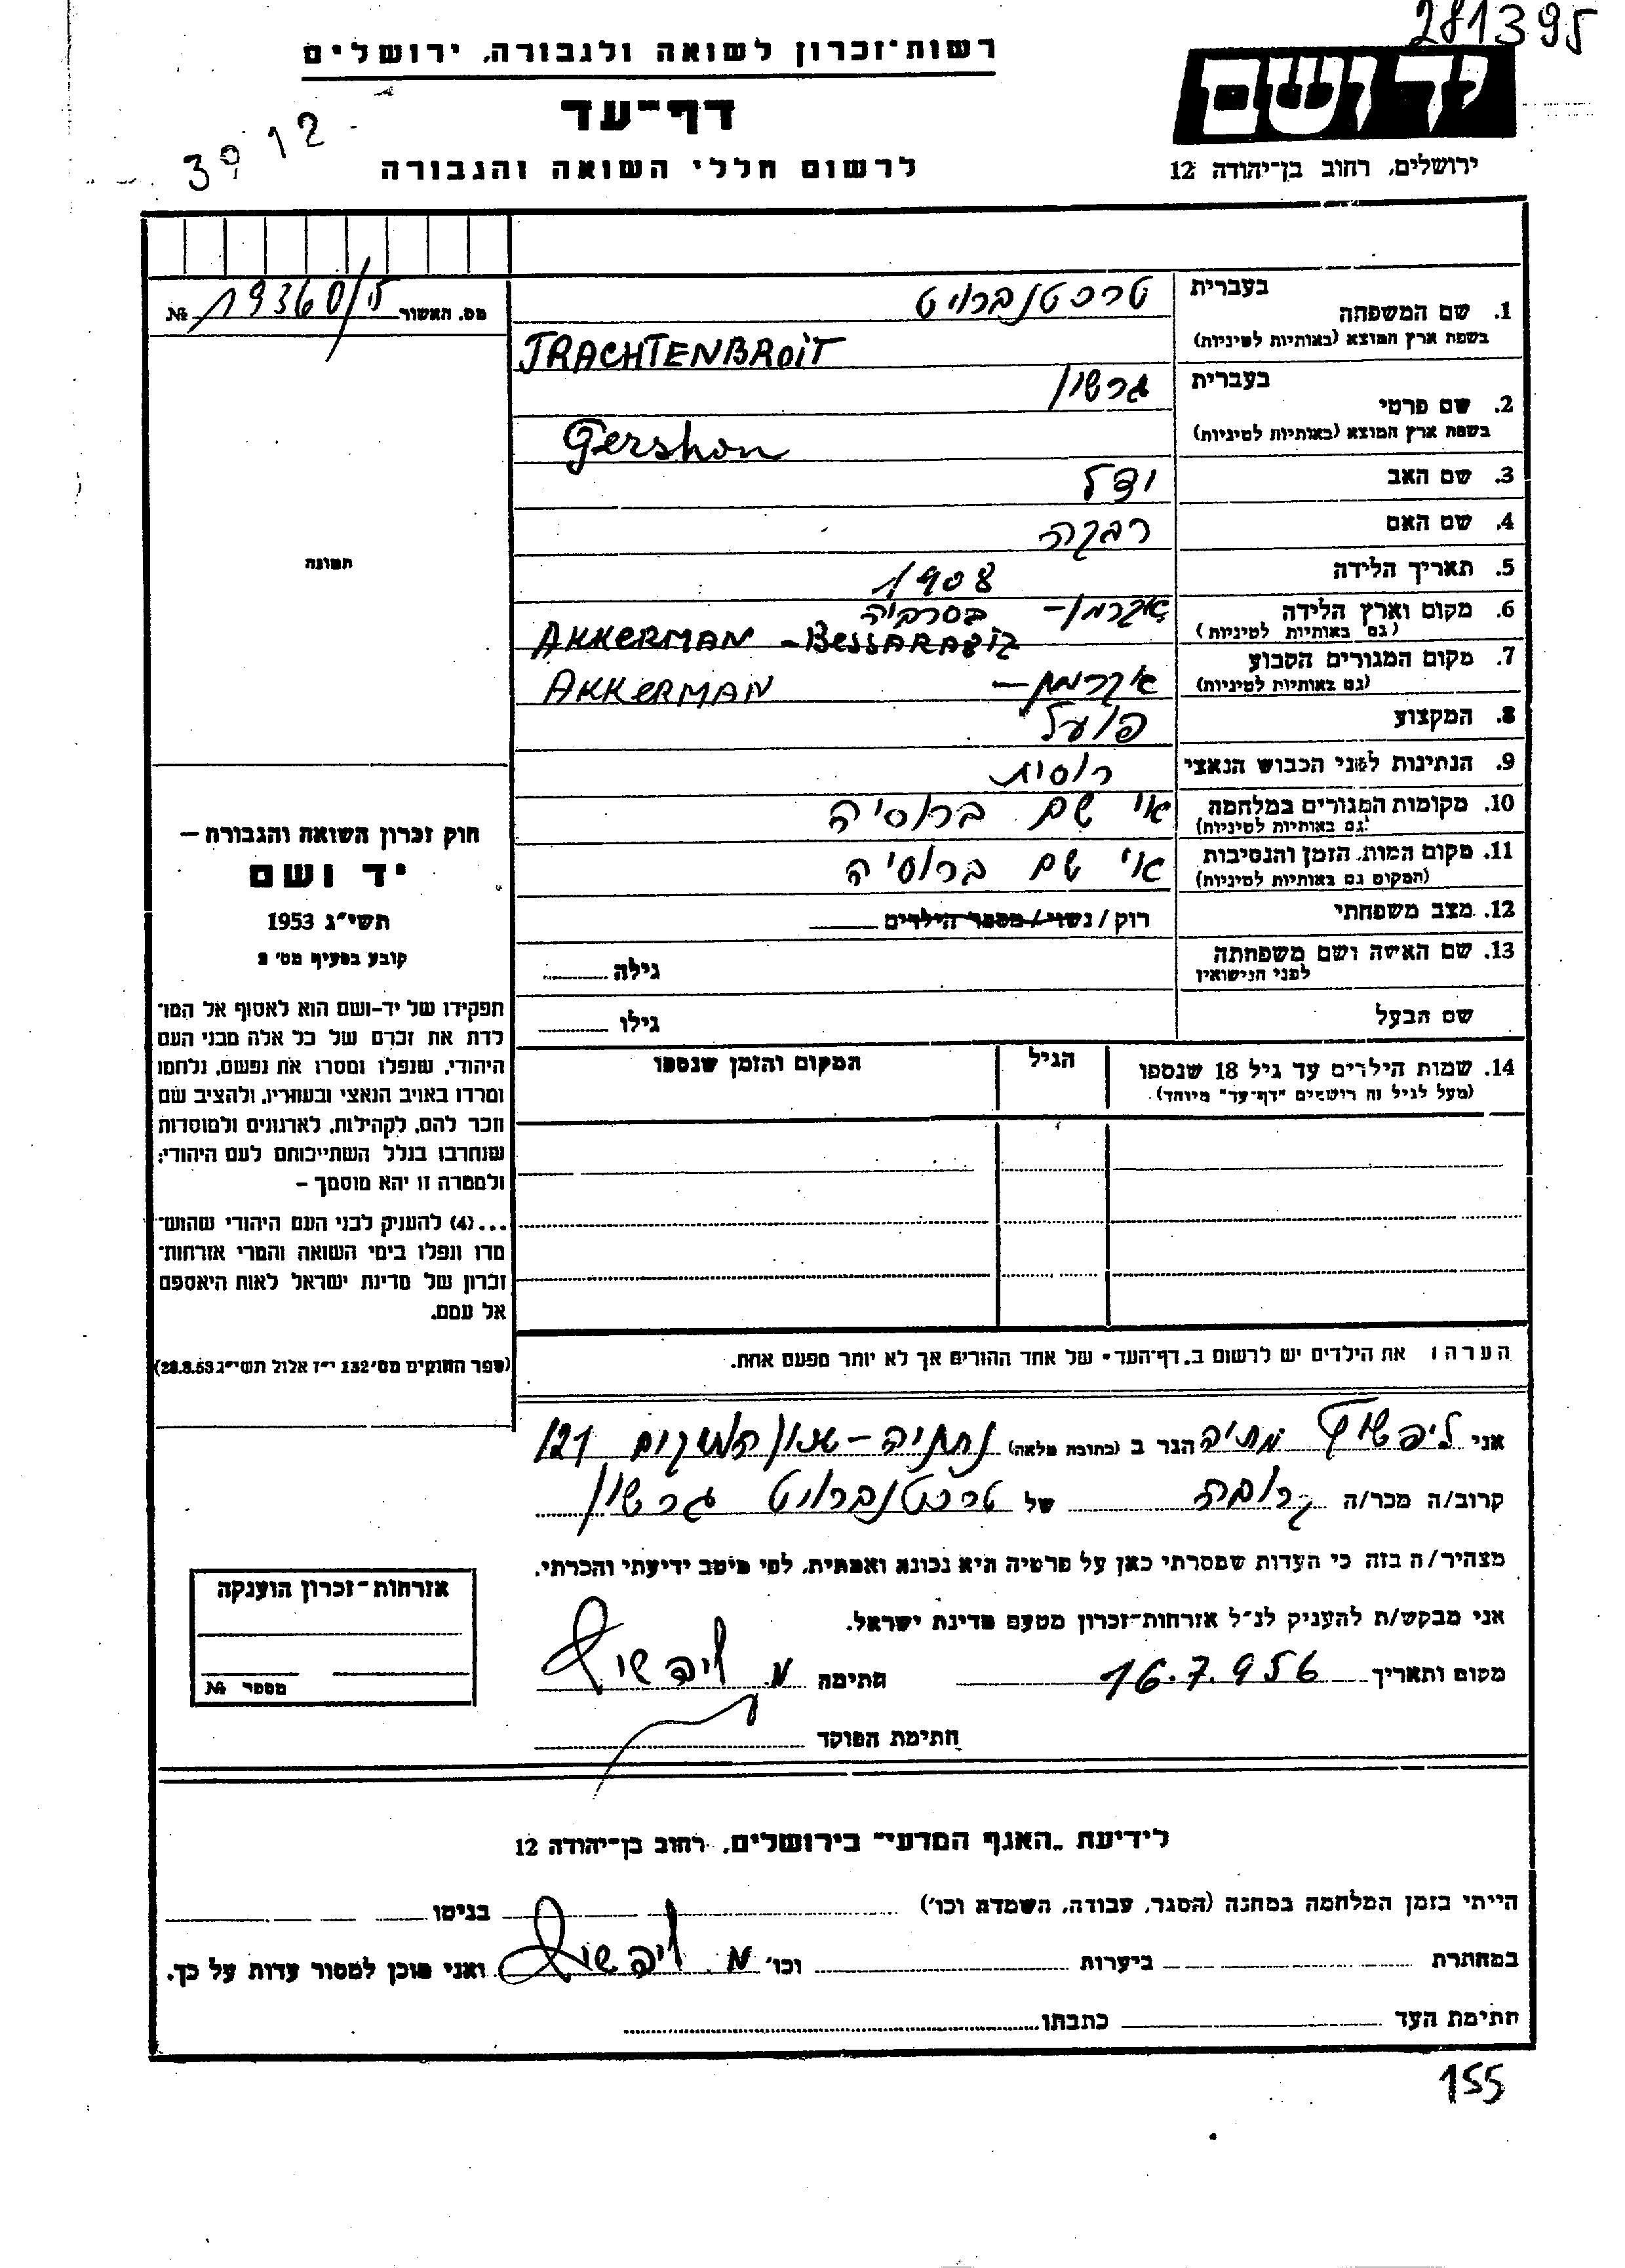 281395
רשות־זכרון לשואה ולגבורה, ירושלים
יד ושם
דף־עד
39 12
לרשום חללי השואה והגבורה
ירושלים, רחוב בן־יהודה 12
מס. האשור 19360/ № ת
1. שם המשפחה
בעברית טרכטנברויט
בשפת ארץ המוצא (באותיות לטיניות) TRACHTENBROIT
2. שם פרטי
בעברית גרשון
בשפת ארץ המוצא (באותיות לטיניות) Gershon
3. שם האב
4. שם האם רבקה
תמונה
5. תאריך הלידה 1908
6. מקום וארץ הלידה אקרמן – בסרביה
(גם באותיות לטיניות) AKKERMAN – BESSARABIA
7. מקום המגורים הקבוע אקרמן –
(גם באותיות לטיניות) AKKERMAN
8. המקצוע פועל
9. הנתינות לפני הכבוש הנאצי רוסית
10. מקומות המגורים במלחמה אי שם ברוסיה
(גם באותיות לטיניות)
11. מקום המות, הזמן והנסיבות אי שם ברוסיה
(המקום גם באותיות לטיניות)
12. מצב משפחתי רוק / נשוי / מספר הילדים
13. שם האשה ושם משפחתה גילה
לפני הנישואין
שם הבעל גילו
14. שמות הילדים עד גיל 18 שנספו הגיל המקום והזמן שנספו
(מעל לגיל זה רושמים "דף־עד" מיוחד).
חוק זכרון השואה והגבורה –
יד ושם
תשי"ג 1953
קובע בסעיף מס' 2
תפקידו של יד-ושם הוא לאסוף אל המו־
לדת את זכרם של כל אלה מבני העם
היהודי, שנפלו ומסרו את נפשם, נלחמו
ומרדו באויב הנאצי ובעוזריו, ולהציב שם
וזכר להם, לקהילות, לארגונים ולמוסדות
שנחרבו בגלל השתייכותם לעם היהודי;
ולמטרה זו יהא מוסמך –
...(4) להעניק לבני העם היהודי שהוש־
מדו ונפלו בימי השואה והמרי אזרחות־
זכרון של מדינת ישראל לאות היאספם
אל עמם.
(ספר החוקים מס' 132 י"ז אלול תשי"ג 28.8.53)
הערה: את הילדים יש לרשום ב„דף־העד" של אחד ההורים אך לא יותר מפעם אחת.
אני ליפשיץ הגר ב (כתובת מלאה) נתניה – שכון 121
קרוב/ה מכר/ה קרובה של טרכטנברויט גרשון
מצהיר/ה בזה כי העדות שמסרתי כאן על פרטיה היא נכונה ואמתית, לפי מיטב ידיעתי והכרתי.
אני מבקש/ת להעניק לנ"ל אזרחות־זכרון מטעם מדינת ישראל.
מקום ותאריך 16.7.956 חתימה מ. ליפשיץ
חתימת הפוקד
אזרחות־זכרון הוענקה
מספר №
לידיעת „האגף המדעי" בירושלים, רחוב בן־יהודה 12
הייתי בזמן המלחמה במחנה (הסגר, עבודה, השמדה וכו') בגיטו
במחתרת ביערות וכו' מ. ליפשיץ ואני מוכן למסור עדות על כך.
חתימת העד כתבתו
155